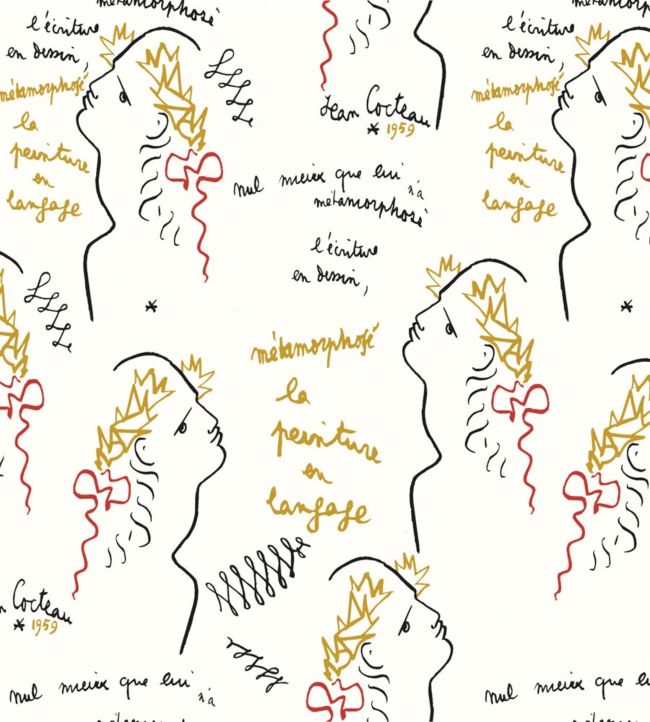 métamorphosé
l'écriture
en dessin,
métamorphosé
la
peinture
en
langage
Jean Cocteau
* 1959
nul mieux que lui n'a
métamorphosé
l'écriture
en dessin,
métamorphosé
la
peinture
en
langage
métamorphosé
l'écriture
en dessin,
métamorphosé
la
peinture
en
langage
*
*
n Cocteau
* 1959
nul mieux que lui n'a
nul mieux que lui